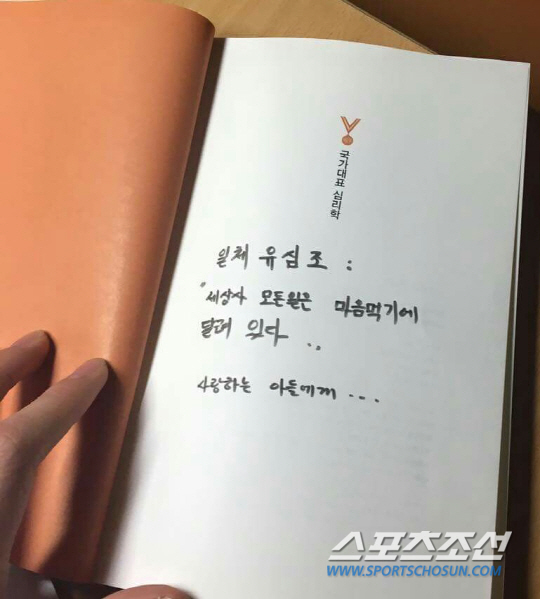 국가대표 심리학
일체 유심조 :
"세상사 모든일은 마음먹기에
달려 있다 ..
사랑하는 아들에게 ...
스포츠조선
WWW.SPORTSCHOSUN.COM